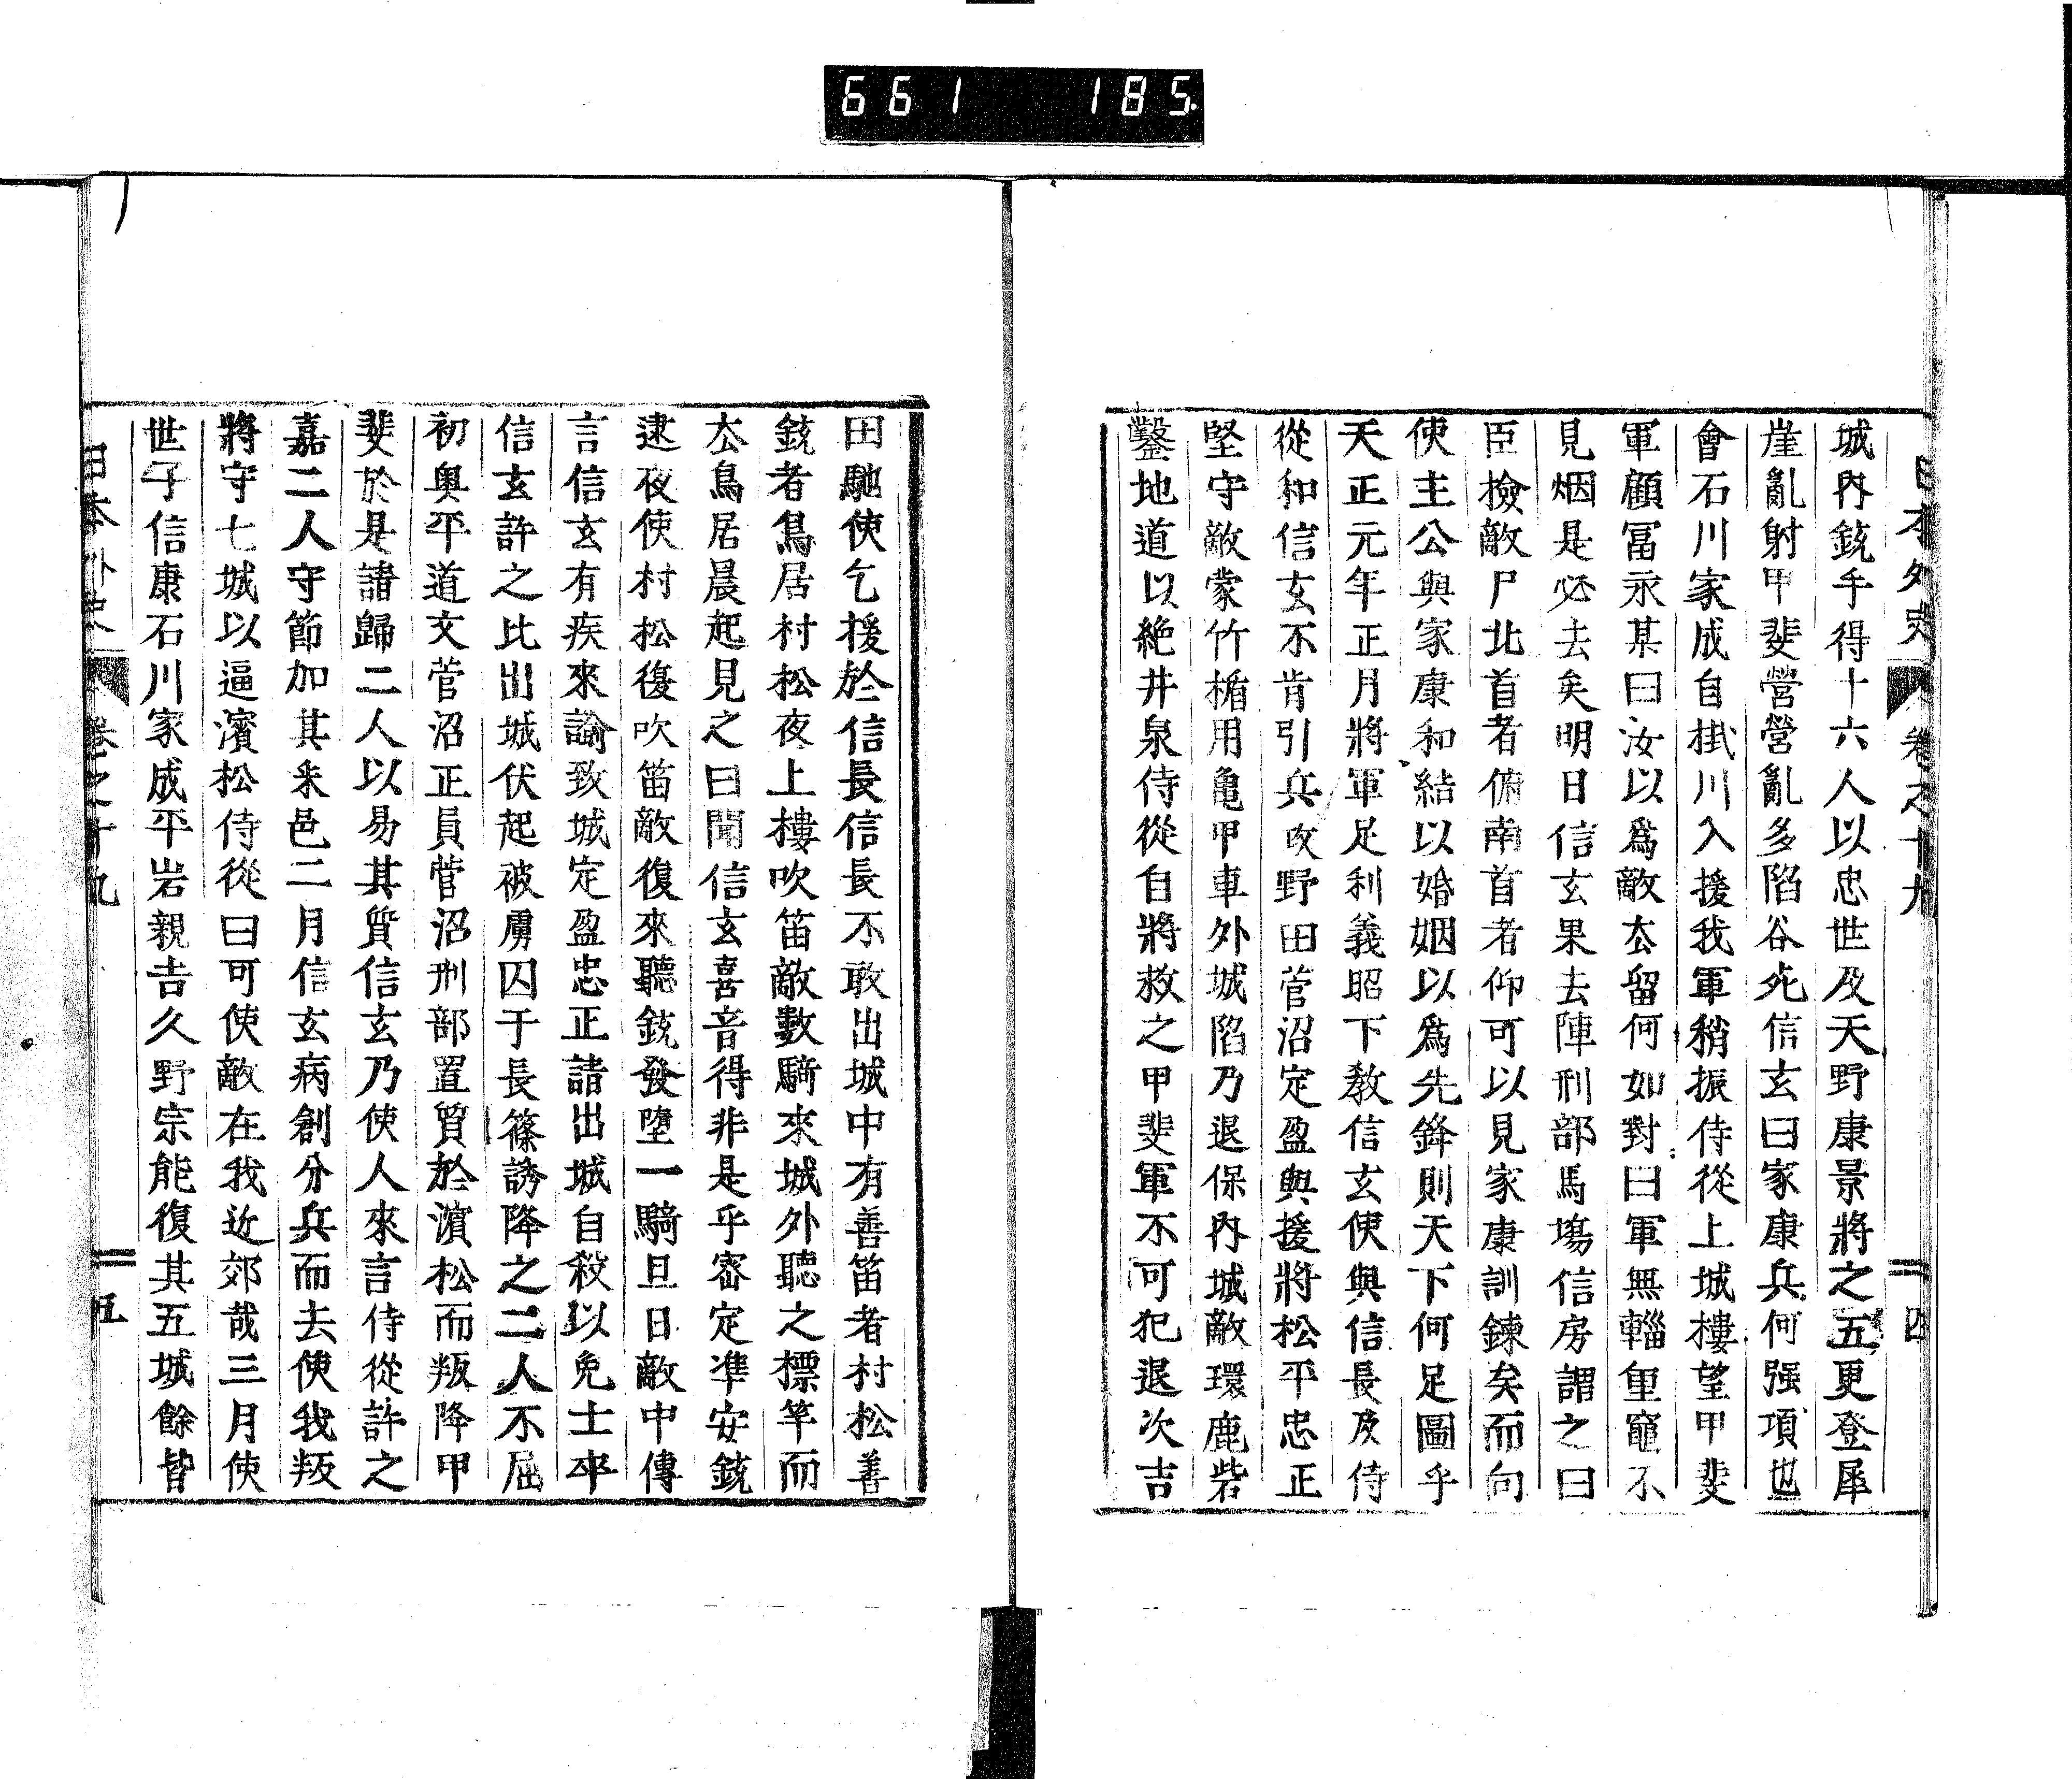 661 185.
日本外史 卷之十九 四
城內銃手得十六人以忠世及天野康景將之五更登犀
崖亂射甲斐營營亂多陷谷死信玄曰家康兵何强項也
會石川家成自掛川入援我軍稍振侍從上城樓望甲斐
軍顧冨永某曰汝以爲敵厺留何如對曰軍無輜重竈不
見烟是必去矣明日信玄果去陣刑部馬塲信房謂之曰
臣撿敵尸北首者俯南首者仰可以見家康訓鍊矣而向
使主公與家康和結以婚姻以爲先鋒則天下何足圖乎
天正元年正月將軍足利義昭下教信玄使與信長及侍
從和信玄不肯引兵攻野田菅沼定盈與援將松平忠正
堅守敵蒙竹楯用亀甲車外城陷乃退保內城敵環鹿砦
鑿地道以絶井泉侍從自將救之甲斐軍不可犯退次吉
田馳使乞援於信長信長不敢出城中有善笛者村松善
銃者鳥居村松夜上樓吹笛敵數騎來城外聽之標竿而
厺鳥居晨起見之曰聞信玄喜音得非是乎密定準安銃
逮夜使村松復吹笛敵復來聽銃發墮一騎旦日敵中傳
言信玄有疾來諭致城定盈忠正請出城自殺以免士卒
信玄許之比出城伏起被虜囚于長篠誘降之二人不屈
初奥平道文菅沼正員菅沼刑部置質於濵松而叛降甲
斐於是請歸二人以易其質信玄乃使人來言侍從許之
嘉二人守節加其釆邑二月信玄病創分兵而去使我叛
將守七城以逼濱松侍從曰可使敵在我近郊哉三月使
世子信康石川家成平岩親吉久野宗能復其五城餘皆
日本外史 卷之十九 五